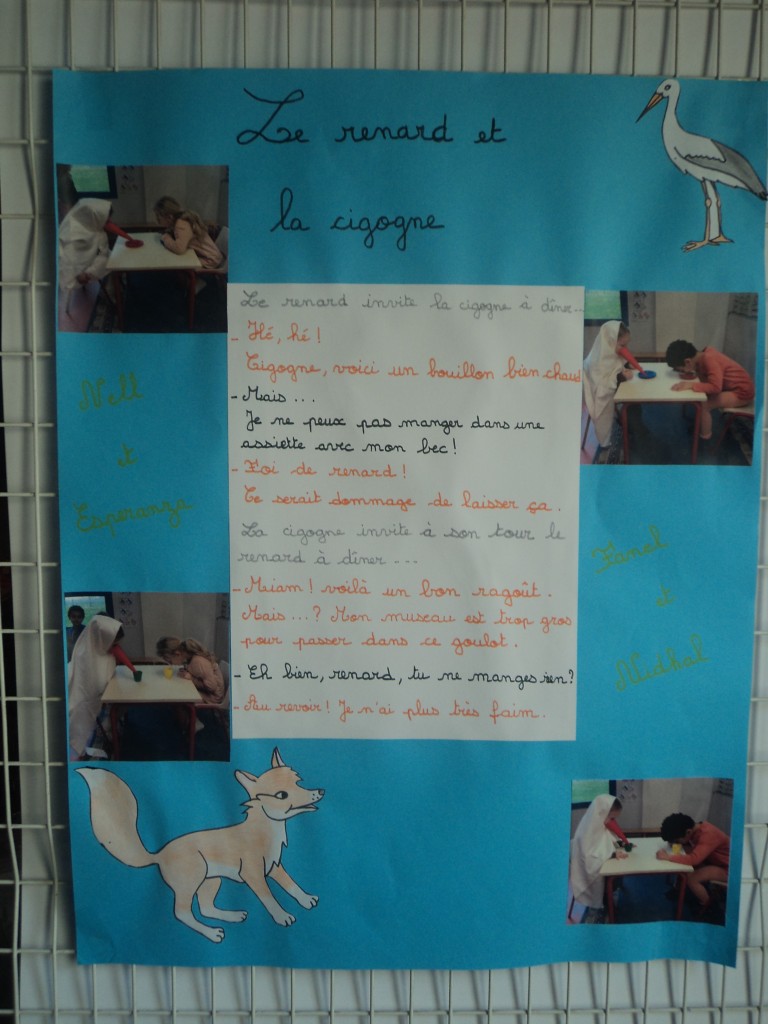 Le renard et
la cigogne
Le renard invite la cigogne à dîner...
- Hé, hé !
Cigogne, voici un bouillon bien chaud
- Mais ...
Je ne peux pas manger dans une
assiette avec mon bec !
- Foi de renard !
Ce serait dommage de laisser ça.
La cigogne invite à son tour le
renard à dîner ...
- Miam ! voilà un bon ragoût.
Mais ...? Mon museau est trop gros
pour passer dans ce goulot.
- Eh bien, renard, tu ne manges rien ?
- Au revoir ! Je n'ai plus très faim.
Nell
et
Esperanza
Fanel
et
Nidhal